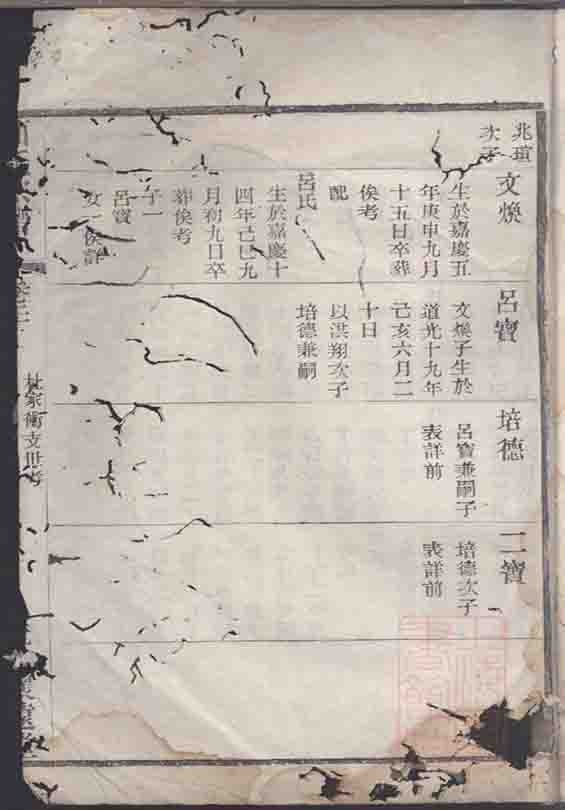 兆瑄
次子
文煥
生於嘉慶五
年庚申九月
十五日卒葬
俟考
配
呂氏
生於嘉慶十
四年己巳九
月初九日卒
葬俟考
子一
呂寶
女一俟詳
呂寶
文煥子生於
道光十九年
己亥六月二
十日
以洪翔次子
培德兼嗣
培德
呂寶兼嗣子
表詳前
二寶
培德次子
表詳前
杜家衝支世考